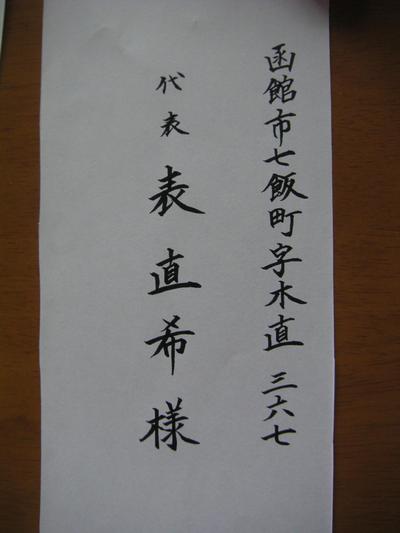 函館市七飯町字木直 三六七
代表 表直希様